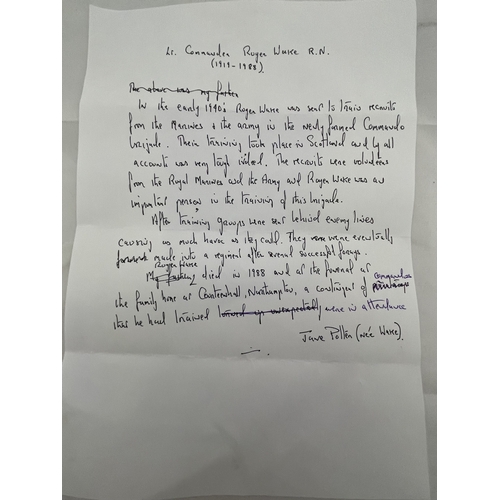 Lt. Commander Roger Wake R.N.
(1919-1988).
The above was my father
In the early 1940s Roger Wake was sent to train recruits
from the Marines & the army in the newly formed Commando
brigade. Their training took place in Scotland and by all
accounts was very tough indeed. The recruits were volunteers
from the Royal Marines and the Army and Roger Wake was an
important person in the training of this brigade.
After training groups were sent behind enemy lines
causing as much havoc as they could. They were were eventually
formed made into a regiment after several successful forays.
Roger Wake
My father died in 1988 and at the funeral at
the family home at Courteenhall, Northampton, a contingent of commandos
that he had trained turned up unexpectedly were in attendance
Jane Potter (née Wake).